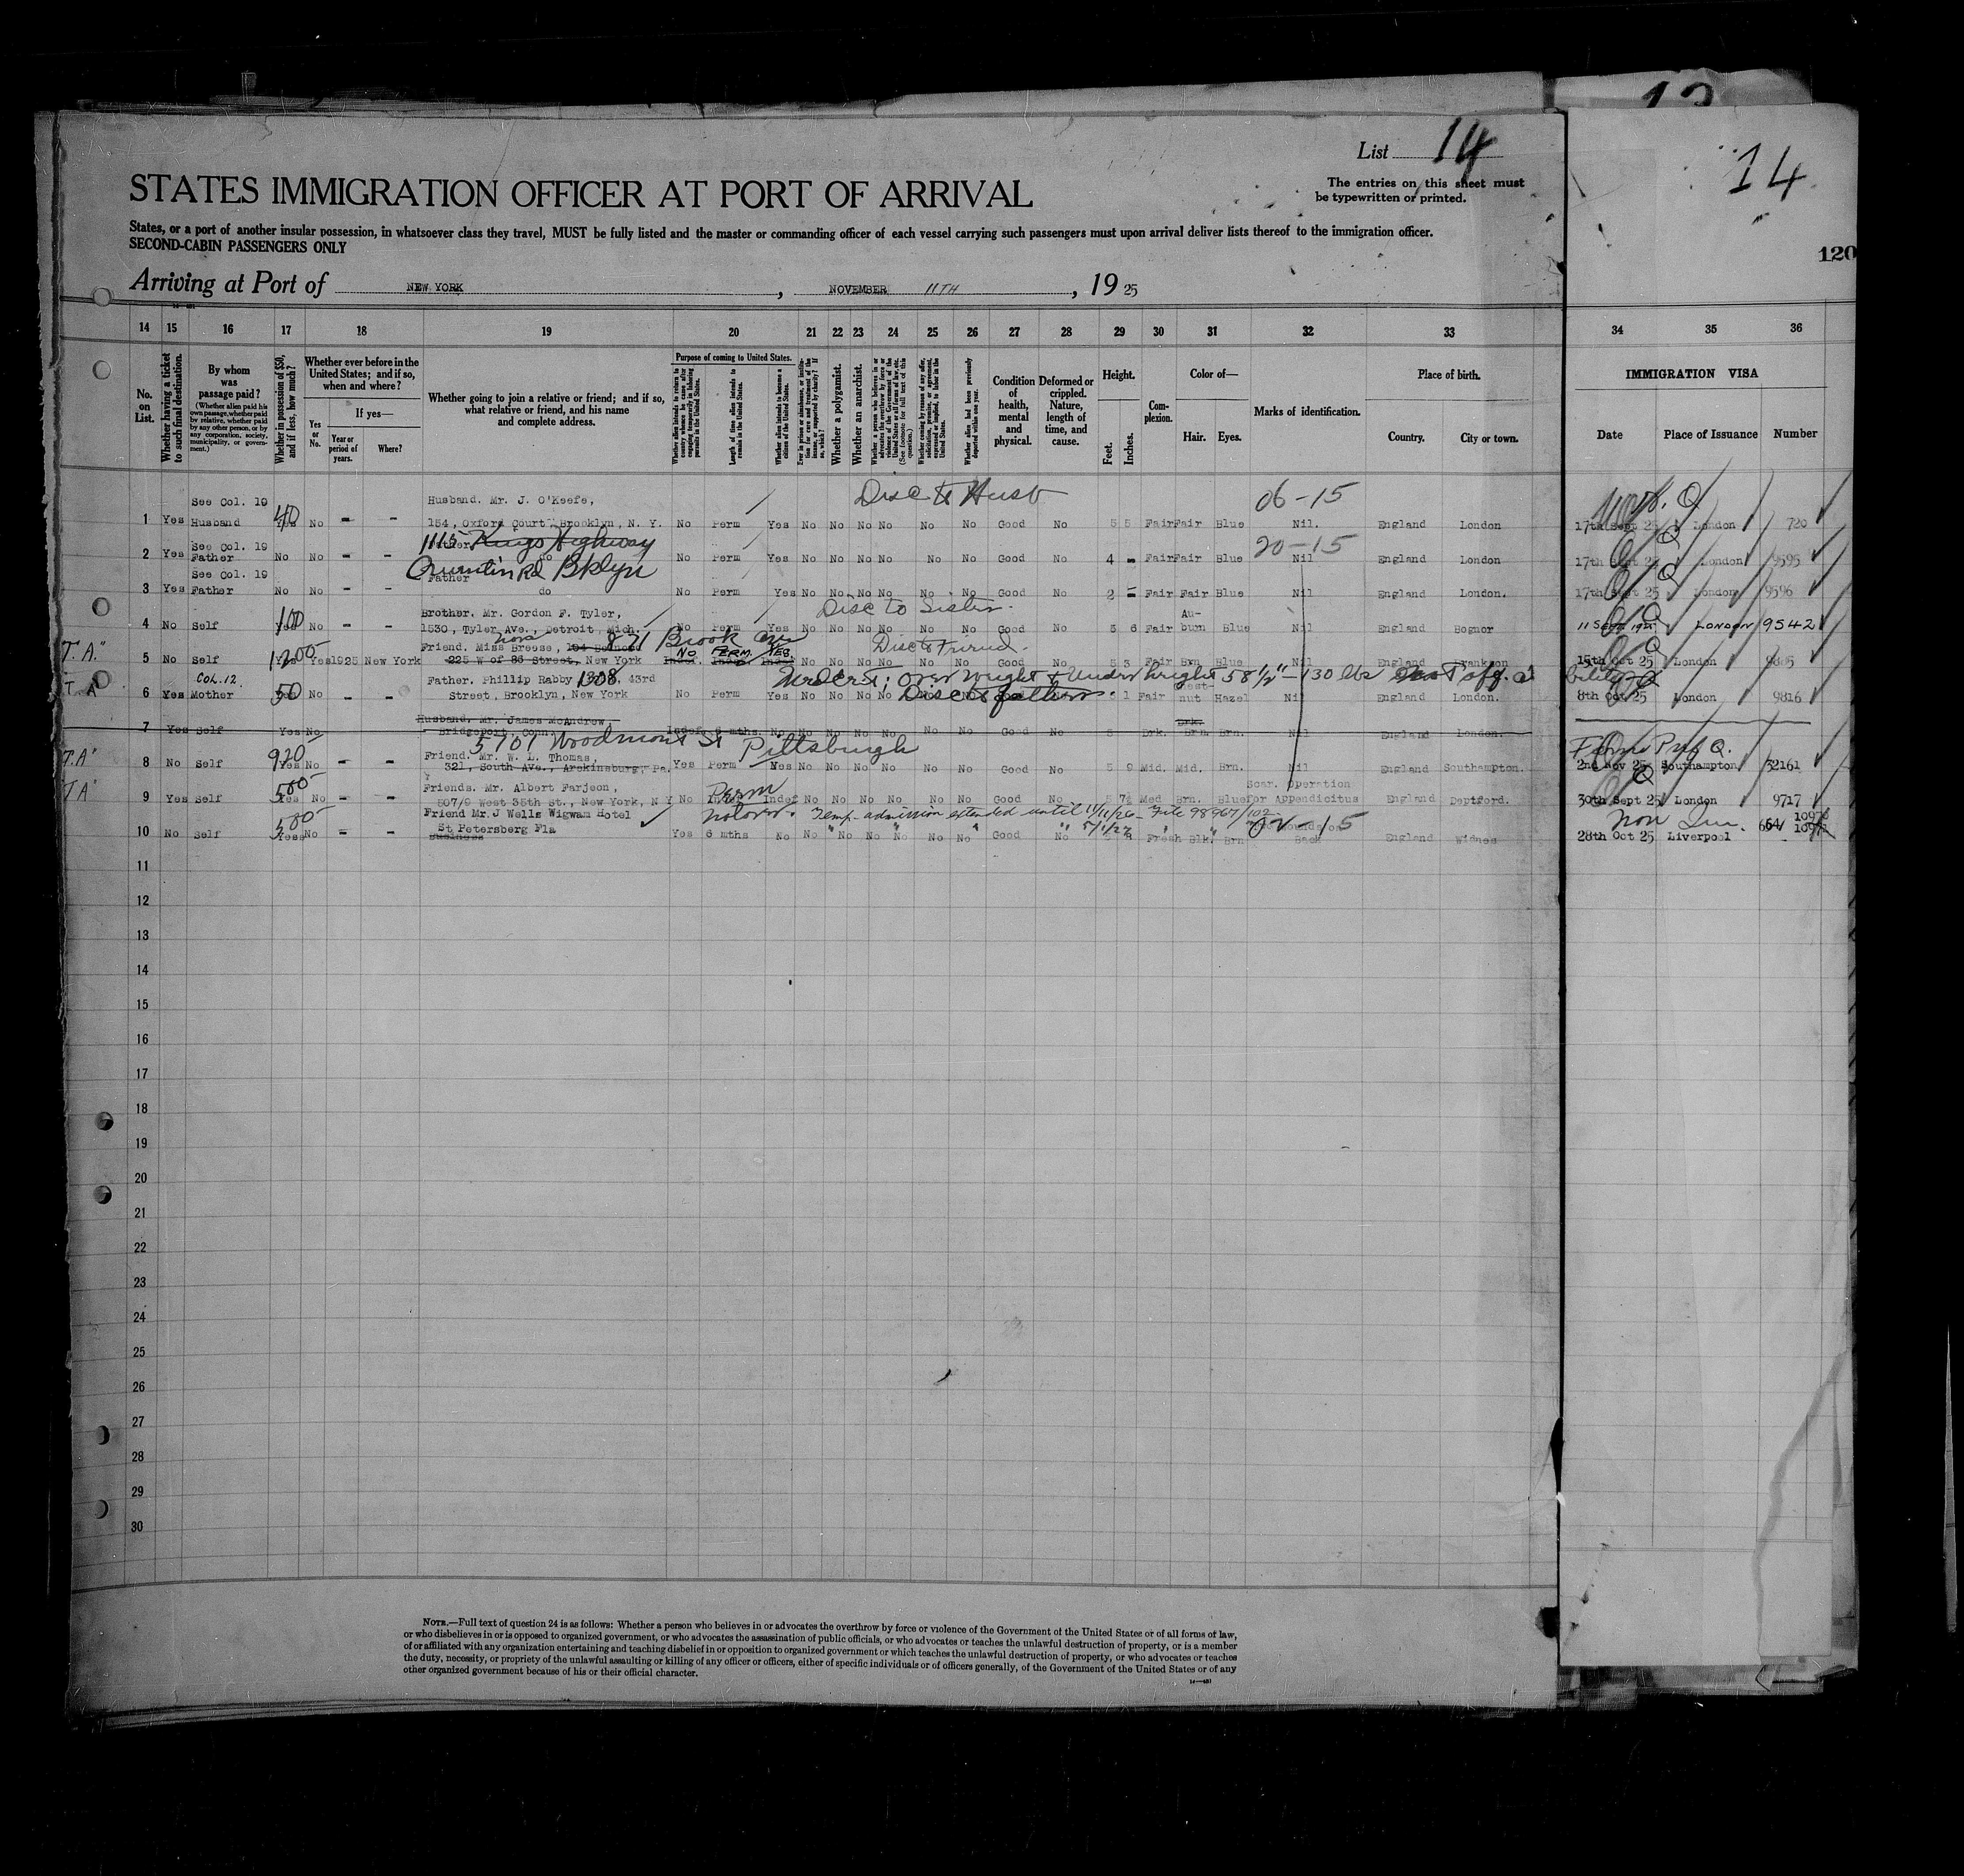 List 14
14
STATES IMMIGRATION OFFICER AT PORT OF ARRIVAL
The entries on this sheet must
be typewritten or printed.
States, or a port of another insular possession, in whatsoever class they travel, MUST be fully listed and the master or commanding officer of each vessel carrying such passengers must upon arrival deliver lists thereof to the immigration officer.
SECOND-CABIN PASSENGERS ONLY
120
Arriving at Port of NEW YORK, NOVEMBER 11TH, 1925
14 15 16 17 18 19 20 21 22 23 24 25 26 27 28 29 30 31 32 33 34 35 36
No. on List.
Whether having a ticket to such final destination.
By whom was passage paid?
(Whether alien paid his own passage, whether paid by relative, whether paid by any other person, or by any corporation, society, municipality, or government.)
Whether in possession of $50, and if less, how much?
Whether ever before in the United States; and if so, when and where?
Yes or No.
If yes—
Year or period of years.
Where?
Whether going to join a relative or friend; and if so, what relative or friend, and his name and complete address.
Purpose of coming to United States.
Length of time alien intends to remain in the United States.
Whether alien intends to become a citizen of the United States.
Whether a polygamist.
Whether an anarchist.
Condition of health, mental and physical.
Deformed or crippled. Nature, length of time, and cause.
Height.
Feet.
Inches.
Complexion.
Color of—
Hair.
Eyes.
Marks of identification.
Place of birth.
Country.
City or town.
IMMIGRATION VISA
Date
Place of Issuance
Number
See Col. 19 Husband. Mr. J. O'Keefe, Disc to Husb 06-15
1 Yes Husband 40 No - - 154, Oxford Court Brooklyn, N. Y. No Perm Yes No No No No No No Good No 5 5 Fair Fair Blue Nil. England London 17th Sept 25 London 720
1115 Kings Highway 20-15
See Col. 19
2 Yes Father No No - - do No Perm Yes No No No No No No Good No 4 - Fair Fair Blue Nil England London 17th Sept 25 London 9595
Quentin Rd Bklyn
See Col. 19 Father
3 Yes Father No No - - do No Perm Yes No No No No No No Good No 2 - Fair Fair Blue Nil England London. 17th Sept 25 London 9596
Brother. Mr. Gordon F. Tyler, Disc to Sister. Au-
4 No Self 100 No - - 1530, Tyler Ave., Detroit, Mich. No Perm Yes No No No No No No Good No 5 6 Fair burn Blue Nil England Bognor LONDON 9542
871 Brook Ave
Friend. Miss Breese, Disc to Friend.
NO PERM. YES.
T.A." 5 No Self Yes 1925 New York 225 W of 86 Street, New York No No No No No No Good No 5 3 Fair Brn Blue Nil England 15th Oct 25 London
COL. 12. Father. Phillip Rabby 1308, 43rd over weight & under height 58½" - 130 lbs
T.A 6 Yes Mother 50 No - - Street, Brooklyn, New York No Perm Yes No No No No Disc to father. 1 Fair nut Hazel Nil England London. 8th Oct 25 London 9816
Husband. Mr. James McAndrew, Drk.
7 Yes Self Yes No Bridgeport, Conn. Indef. 6 mths. No No No No No No No Good No 5 Drk. Brn. Brn. Nil England London.
5707 Woodmont St Pittsburgh
Friend. Mr. W. L. Thomas,
T.A" 8 No Self 920 No - - 321, South Ave., Arckinsburg, Pa. Yes Perm Yes No No No No No No Good No 5 9 Mid. Mid. Brn. Nil England Southampton. 2nd Nov 25 Southampton 32161
Friends. Mr. Albert Farjeon, Perm Scar. Operation
TA" 9 Yes Self 500 No - - 507/9 West 35th St., New York, N Y No Indef No No No No No No Good No 5 7½ Med. Brn. Blue for Appendicitus England Deptford. 30th Sept 25 London 9717
Friend Mr. J Wells Wigwam Hotel Temp. admission extended until 11/11/26 - File 98967/102
" " 5/1/27 " " 02-15
St Petersberg Fla
10 No Self 500 Yes No - - Business Yes 6 mths No No No No No No No Good No Fresh Blk. Brn Back England Widnes 28th Oct 25 Liverpool
11
12
13
14
15
16
17
18
19
20
21
22
23
24
25
26
27
28
29
30
NOTE.—Full text of question 24 is as follows: Whether a person who believes in or advocates the overthrow by force or violence of the Government of the United States or of all forms of law,
or who disbelieves in or is opposed to organized government, or who advocates the assassination of public officials, or who advocates or teaches the unlawful destruction of property, or is a member
of or affiliated with any organization entertaining and teaching disbelief in or opposition to organized government or which teaches the unlawful destruction of property, or who advocates or teaches
the duty, necessity, or propriety of the unlawful assaulting or killing of any officer or officers, either of specific individuals or of officers generally, of the Government of the United States or of any
other organized government because of his or their official character.